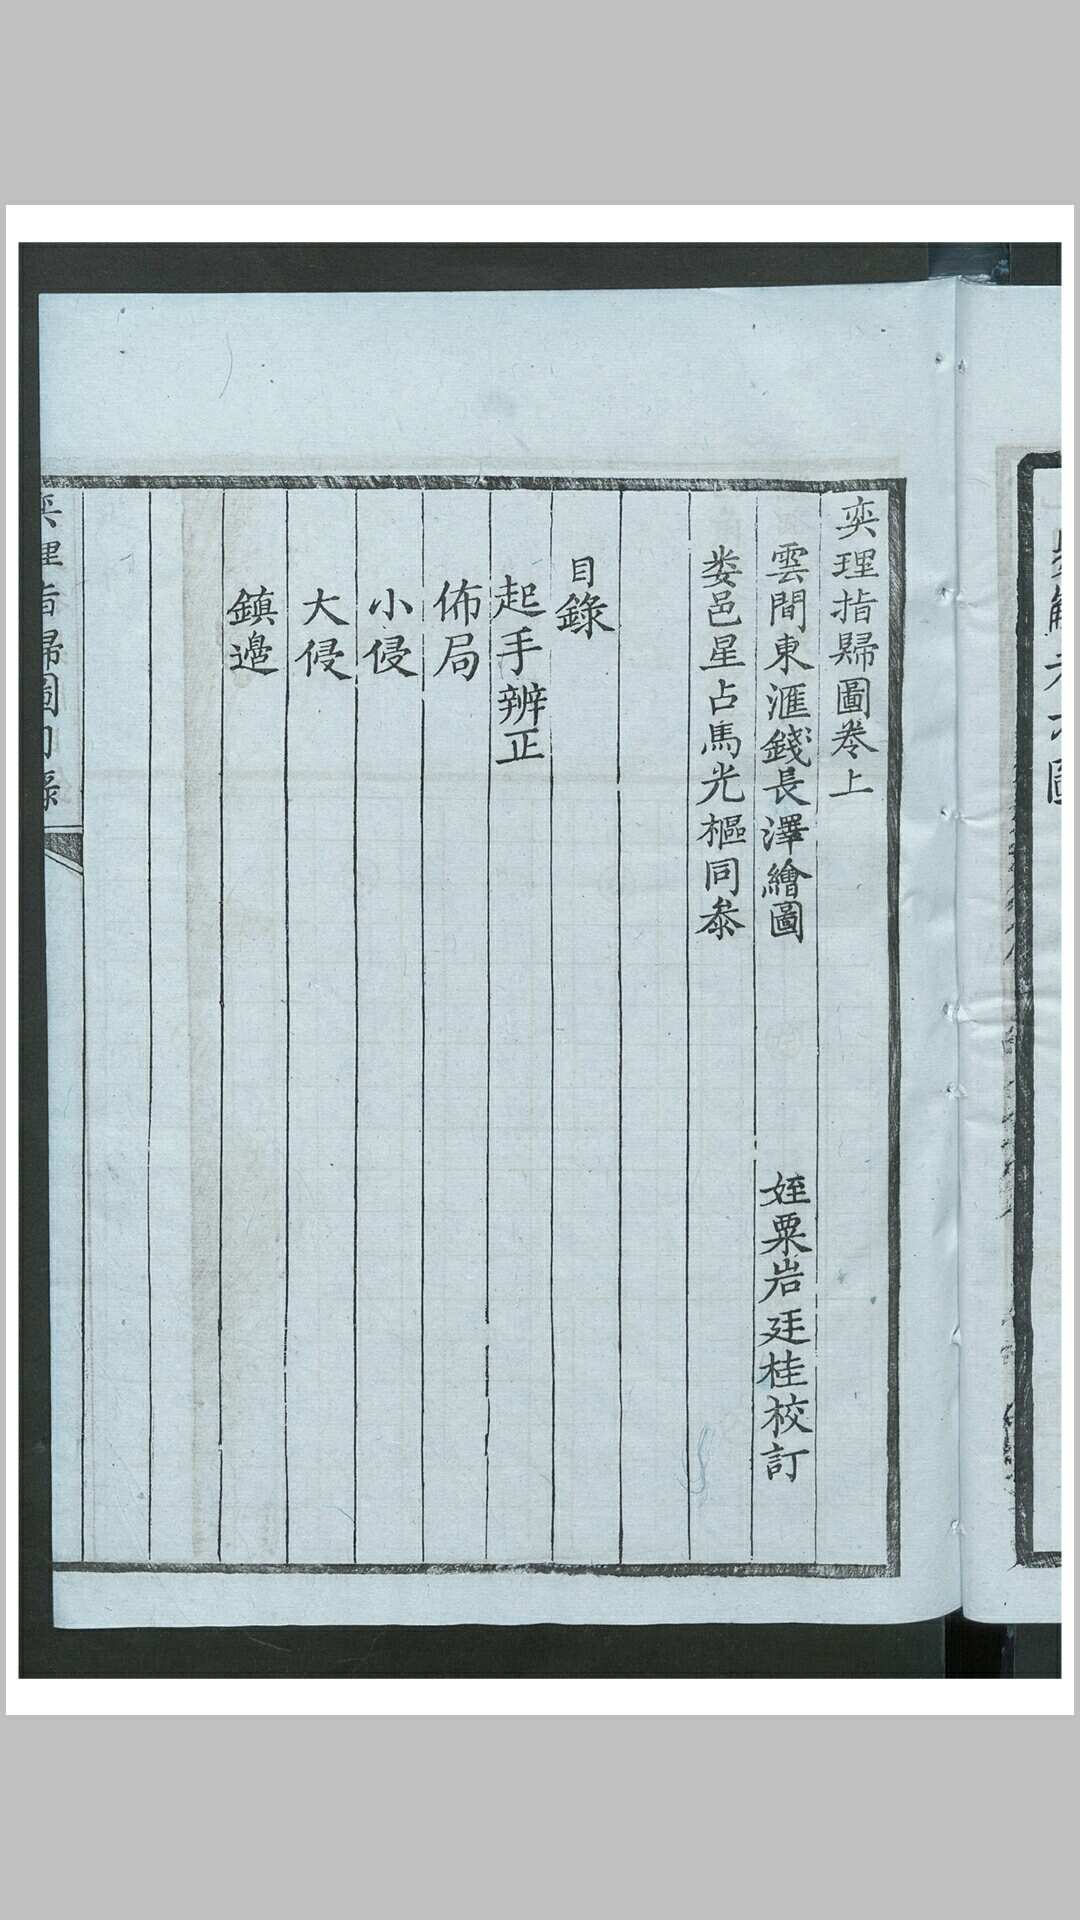 奕理指歸圖卷上
雲間東滙錢長澤繪圖
姪粟岩廷桂校訂
婁邑星占馬光樞同叅
目錄
起手辨正
佈局
小侵
大侵
鎮邉